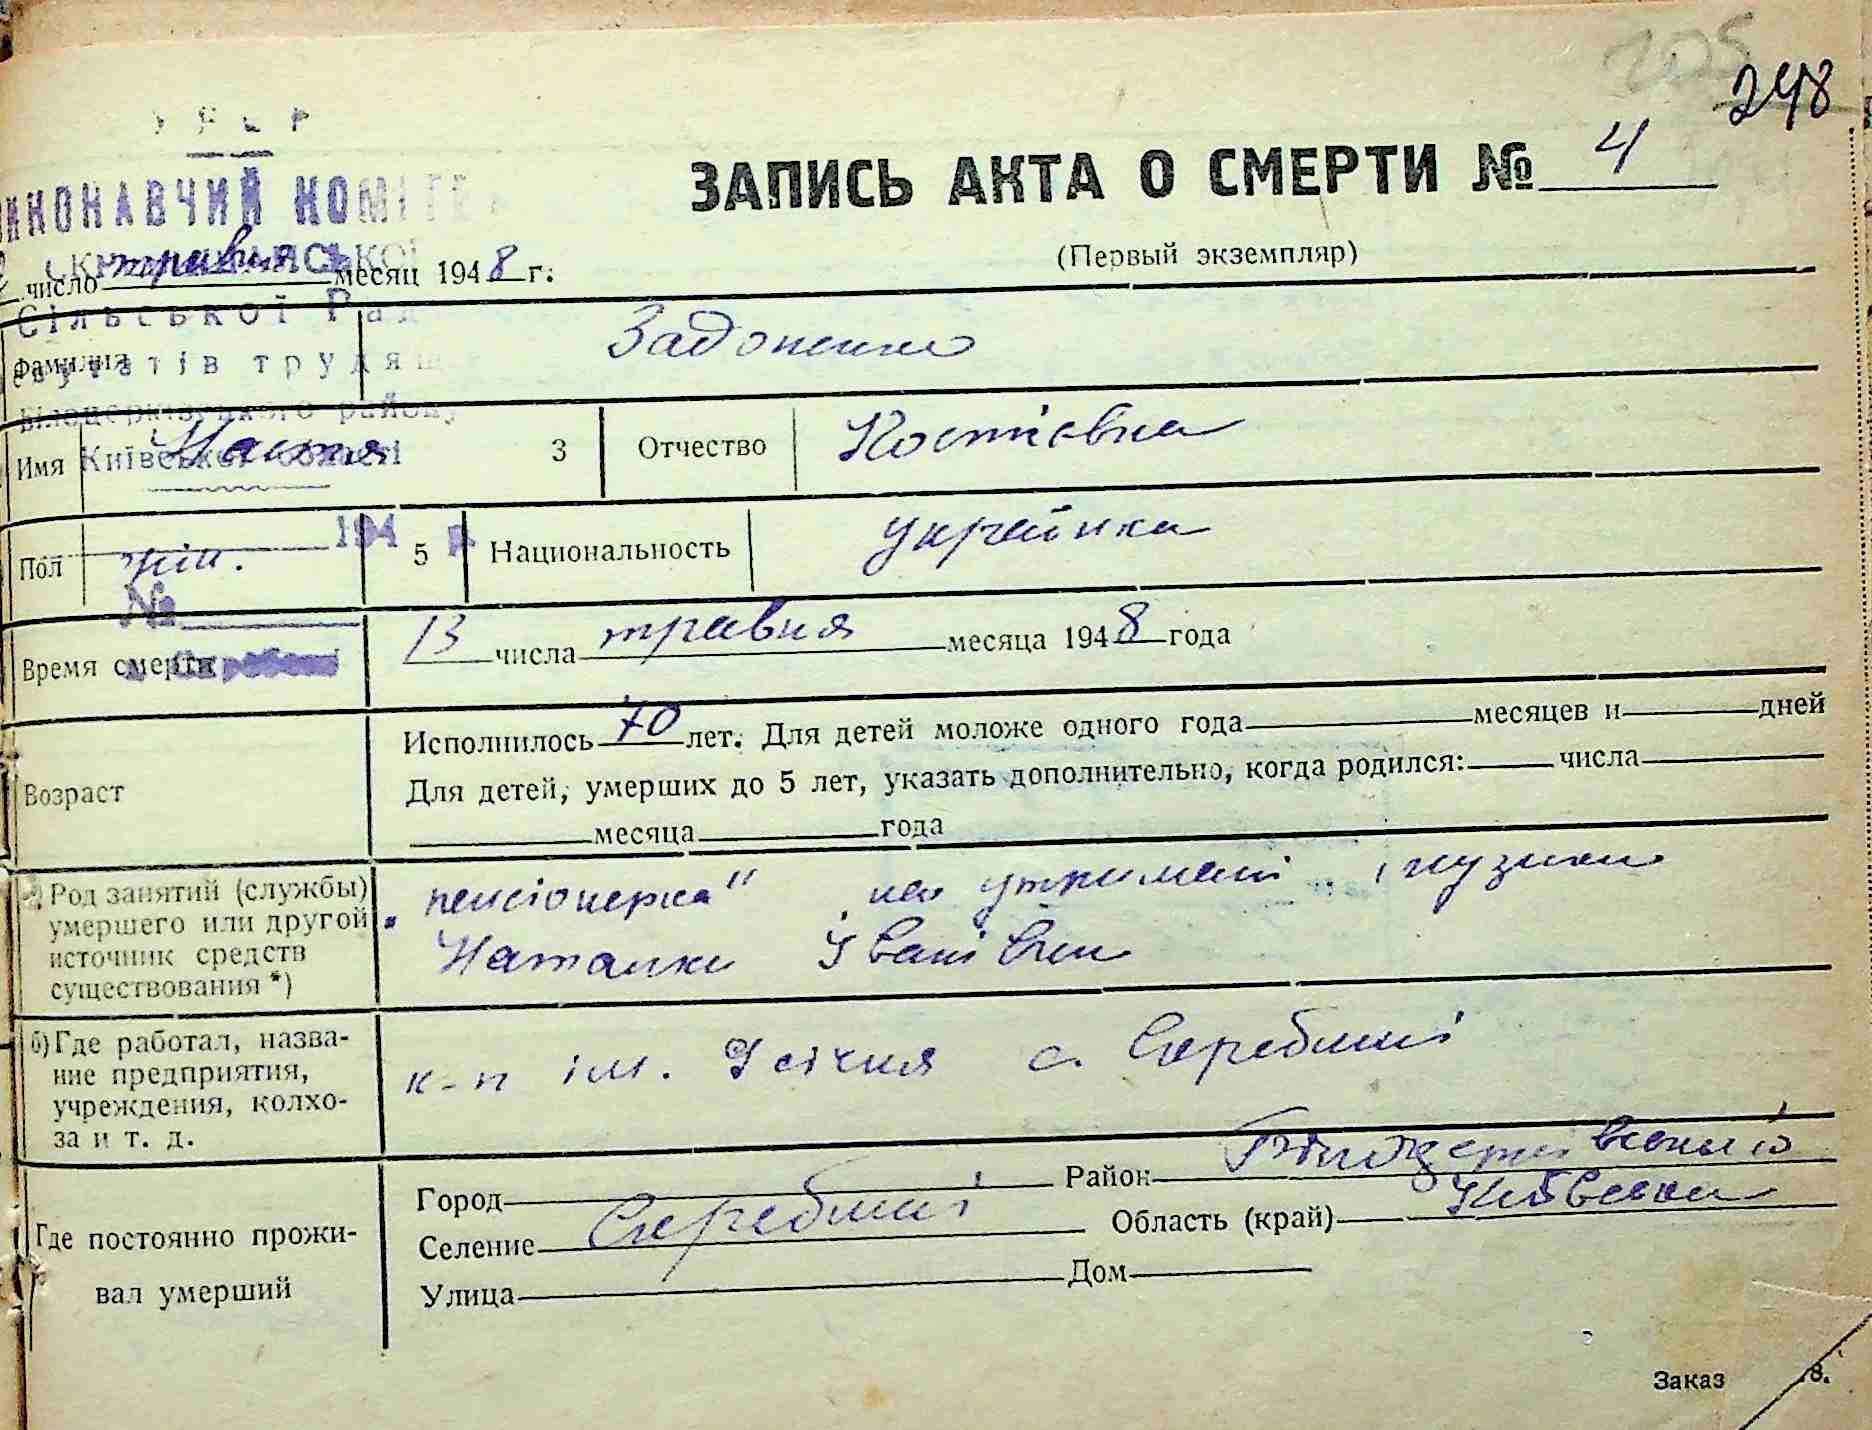 205
248
У Р С Р
ВИКОНАВЧИЙ КОМІТЕ
ЗАПИСЬ АКТА О СМЕРТИ № 4
(Первый экземпляр)
число травня месяц 1948 г.
Сільської Рад
депутатів трудящ
Фамилия Задоненко
Білоцерківського району
Київської області
Имя Настя 3 Отчество Костівна
194 р.
Пол жін. 5 Национальность українка
№
Время смерти 13 числа травня месяца 1948 года
с. Скребиші
Возраст Исполнилось 70 лет. Для детей моложе одного года месяцев и дней
Для детей, умерших до 5 лет, указать дополнительно, когда родился: числа
месяца года
а) Род занятий (службы) умершего или другой источник средств существования *)
"пенсіонерка" на утримані
Наталки Іванівни
б) Где работал, назва-
ние предприятия,
учреждения, колхо-
за и т. д.
к-п ім. 9 січня с. Скребиші
Где постоянно прожи-
вал умерший
Город Район Білоцерківський
Селение Скребиші Область (край) Київська
Улица Дом
Заказ 8.